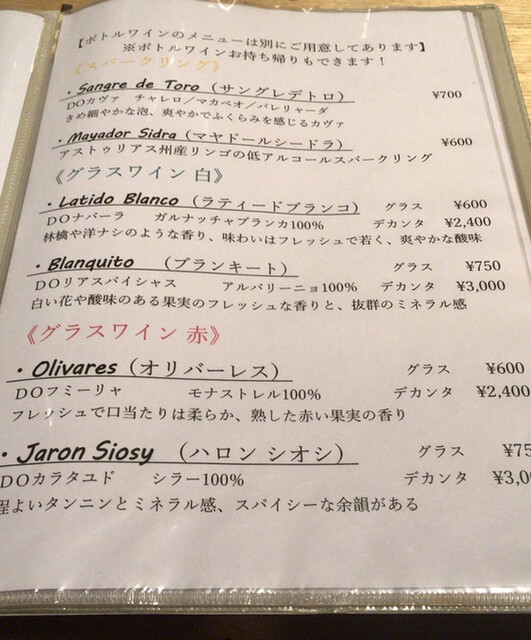 【ボトルワインのメニューは別にご用意してあります】
※ボトルワインお持ち帰りもできます！
《スパークリング》
・Sangre de Toro（サングレデトロ） ¥700
DOカヴァ チャレロ／マカベオ／パレリャーダ
きめ細やかな泡、爽やかでふくらみを感じるカヴァ
・Mayador Sidra（マヤドールシードラ） ¥600
アストゥリアス州産リンゴの低アルコールスパークリング
《グラスワイン 白》
・Latido Blanco（ラティードブランコ） グラス ¥600
DOナバーラ ガルナッチャブランカ100% デカンタ ¥2,400
林檎や洋ナシのような香り、味わいはフレッシュで若く、爽やかな酸味
・Blanquito （ブランキート） グラス ¥750
DOリアスバイシャス アルバリーニョ100% デカンタ ¥3,000
白い花や酸味のある果実のフレッシュな香りと、抜群のミネラル感
《グラスワイン 赤》
・Olivares（オリバーレス） グラス ¥600
DOフミーリャ モナストレル100% デカンタ ¥2,400
フレッシュで口当たりは柔らか、熟した赤い果実の香り
・Jaron Siosy （ハロン シオシ） グラス ¥75
DOカラタユド シラー100% デカンタ ¥3,0
程よいタンニンとミネラル感、スパイシーな余韻がある